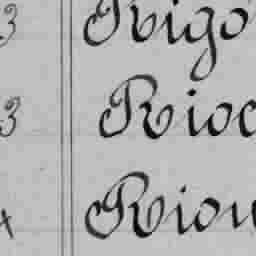 3 Rigo
3 Rioc
4 Riou